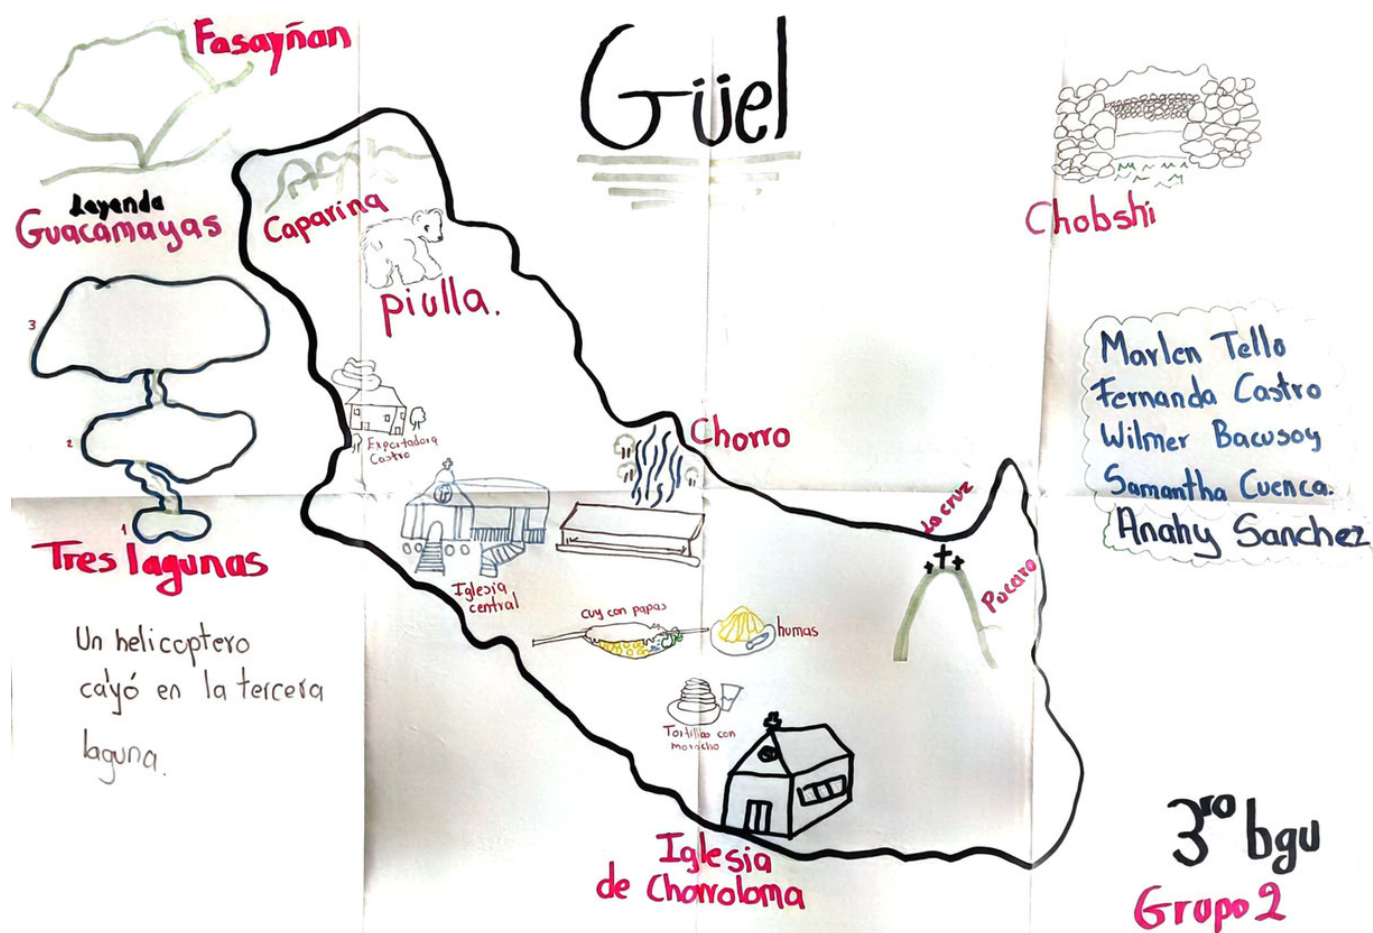 Fasayñan
Güel
Leyenda
Guacamayas
Caparina
piulla.
Chobshi
3
2
1
Tres lagunas
Un helicoptero
cayó en la tercera
laguna.
Exportadora
Castro
Chorro
Iglesia
central
La cruz
Pucara
cuy con papas
humas
Tortillas con
morocho
Iglesia
de Chorroloma
Marlen Tello
Fernanda Castro
Wilmer Bacusoy
Samantha Cuenca.
Anahy Sanchez
3ro bgu
Grupo 2